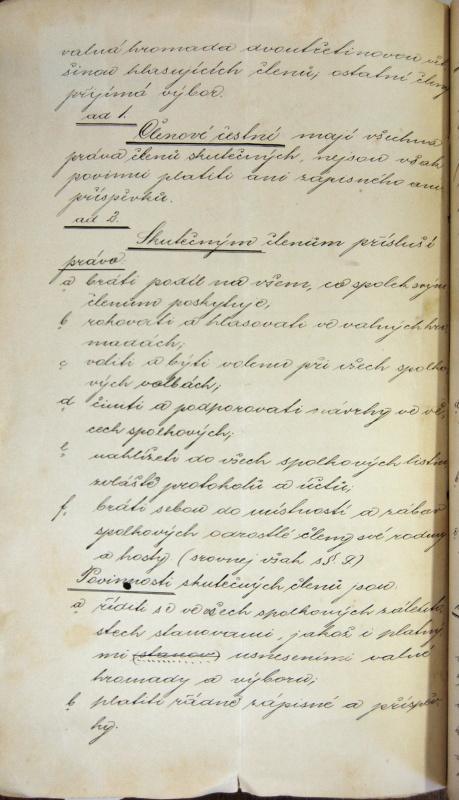 valná hromada dvoutřetinovou vět
šinou hlasujících členů; ostatní členy
přijímá výbor.
ad 1.
Členové čestní mají všechna
práva členů skutečných, nejsou však
povinni platiti ani zápisného ani
příspěvků.
ad 2.
Skutečným členům přísluší
právo
a bráti podíl na všem, co spolek svým
členům poskytuje;
b rokovati a hlasovati ve valných hro
madách;
c voliti a býti volenu při všech spolko
vých volbách;
d činiti a podporovati návrhy ve vě,
cech spolkových;
e nahlížeti do všech spolkových listin
zvláště protokolů a účtů;
f. bráti sebou do místností a zábav
spolkových odrostlé členy své rodiny
a hosty (srovnej však s §. 9)
Povinnosti skutečných členů jsou.
a říditi se ve všech spolkových záležito
stech stanovami, jakož i platný
mi (stanov) usneseními valné
hromady a výboru;
b platiti řádně zápisné a příspěv
ky.